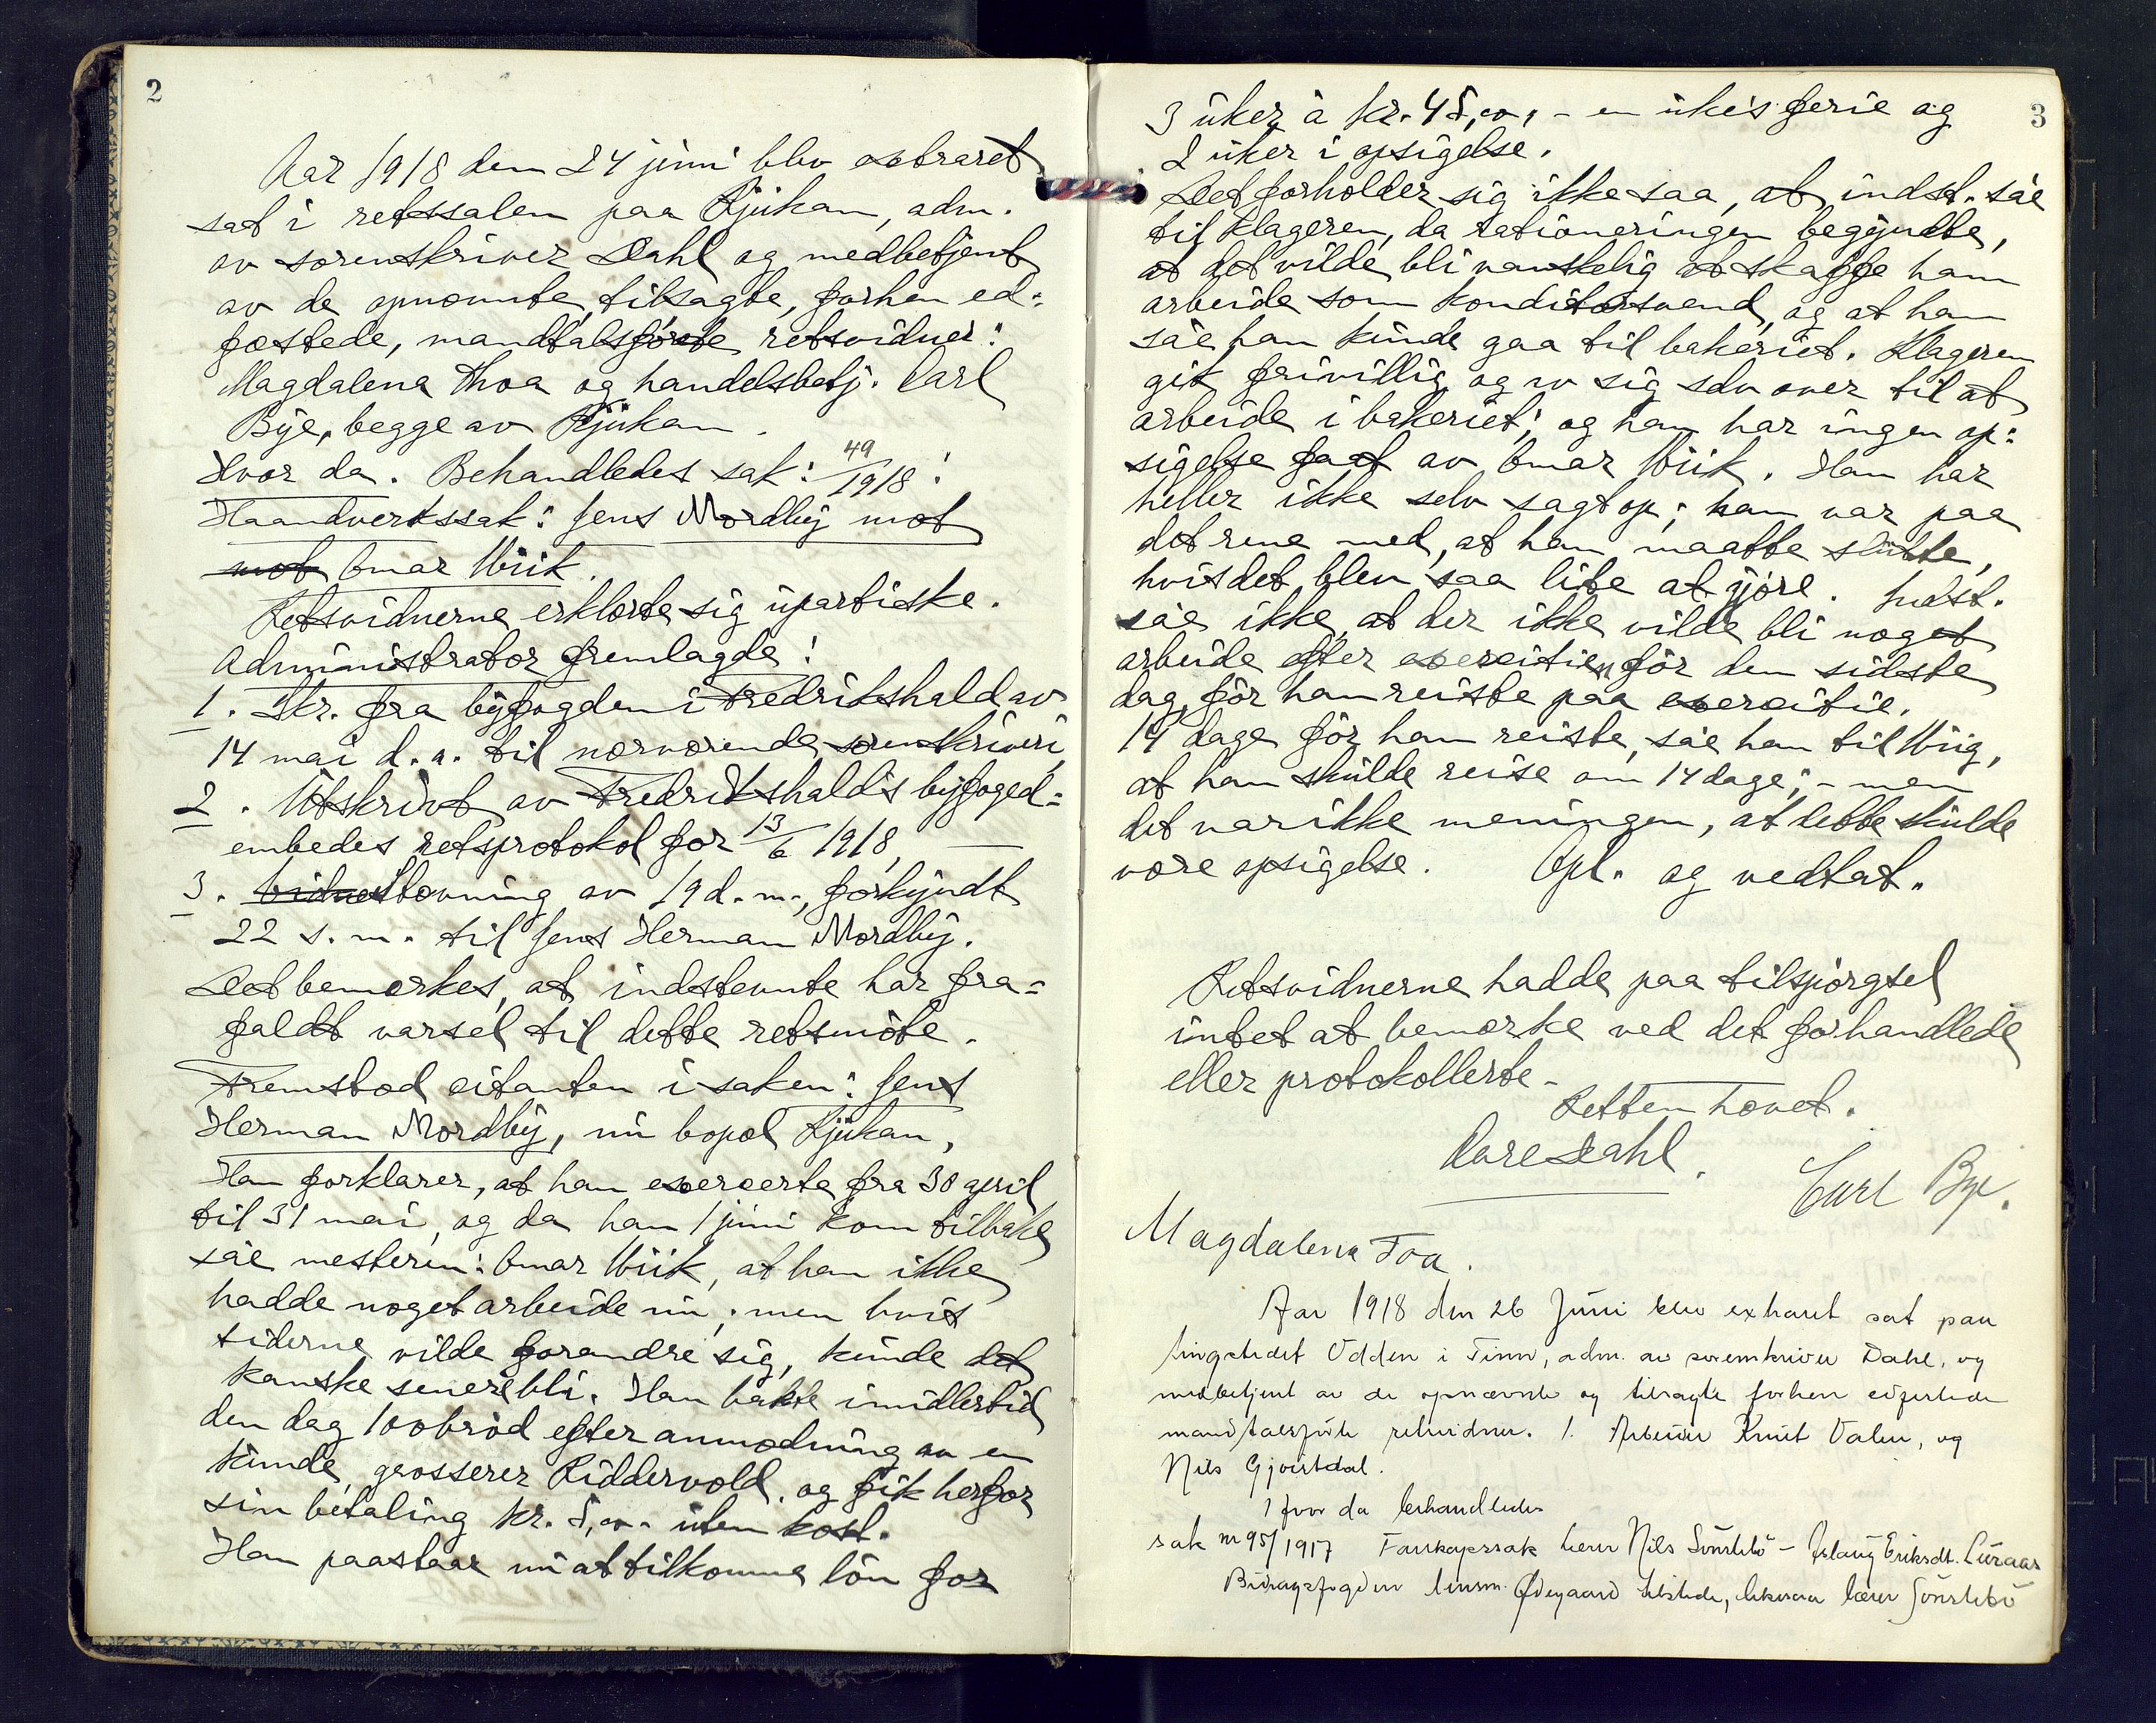 2
Aar 1918 den 24 juni blev extraret
sat i retssalen paa Rjukan, adm.
av sorenskriver Dahl og medbetjent
av de opnævnte, tilsagte, forhen ed=
fæstede, mandtalsførte retsvidner:
Magdalena Thoa og handelsbetj. Carl
Bye, begge av Rjukan.
Hvor da. Behandledes sak: 49/1918:
Haandverkssak: Jens Mordby mot
mot Omar Wiik.
Retsvidnerne erklærte sig upartiske.
Administrator fremlagde:
1. Skr. fra byfogden i Fredrikshald av
14 mai d. a. til nærværende sorenskriveri,
2. Utskrivt av Fredrikshalds byfoged=
embedes retsprotokol for 13/6 1918,
3. Vidnestævning av 19 d. m., forkyndt
22 s. m. til Jens Herman Mordby.
Det bemerkes, at indstevnte har fra=
faldt varsel til dette retsmöte.
Fremstod citanten i saken: Jens
Herman Mordby, nu bopæl Rjukan,
Han forklarer, at han exercerte fra 30 april
til 31 mai, og da han 1 juni kom tilbake
sae mesteren: Omar Wiik, at han ikke
hadde noget arbeide nu; men hvis
tiderne vilde forandre sig, kunde det
kanske senere bli. Han bakte imidlertid
den dag 100 bröd efter anmodning av en
kunde, grosserer Riddervold, og fik herfor
sin betaling kr. 5,00. uten kost.
Han paastaar nu at tilkomme lön for
3
3 uker à kr. 45,00, - en ukes ferie og
2 uker i opsigelse.
Det forholder sig ikke saa, at indst. sae
til klageren, da rationeringen begyndte,
at det vilde bli vanskelig at skaffe ham
arbeide som konditorsvend, og at han
sae, han kunde gaa til bakeriet. Klageren
gik frivillig og av sig selv over til at
arbeide i bakeriet; og han har ingen op=
sigelse faat av Omar Wiik. Han har
heller ikke selv sagt op; han var paa
det rene med, at han maatte slutte,
hvis det blev saa lite at gjöre. Indst.
sae ikke, at der ikke vilde bli noget
arbeide efter exercitien för den sidste
dag, för han reiste paa exercitie.
14 dage för han reiste, sae han til Wiig,
at han skulde reise om 14 dage; - men
det var ikke meningen, at dette skulde
være opsigelse. Opl. og vedtat.
Retsvidnerne hadde paa tilspörgsel
intet at bemærke ved det forhandlede
eller protokollerte -
Retten hævet.
Carl Dahl.
Carl Bye.
Magdalena Toa.
Aar 1918 den 26 Juni blev extraret sat paa
tingstedet Odden i Tinn, adm. av sorenskriver Dahl, og
medbetjent av de opnævnte og tilsagte forhen edfæstede
mandtalsførte retsvidner. 1. Arbeider Knut Valen, og
Nils Gjøistdal.
Hvor da behandledes
sak nr 95/1917 Farskapssak Nils Sönstebö - Aslaug Eriksdt. Luraas
Bidragsfogden lensm. Ødegaard tilstede, lærer Sönstebö